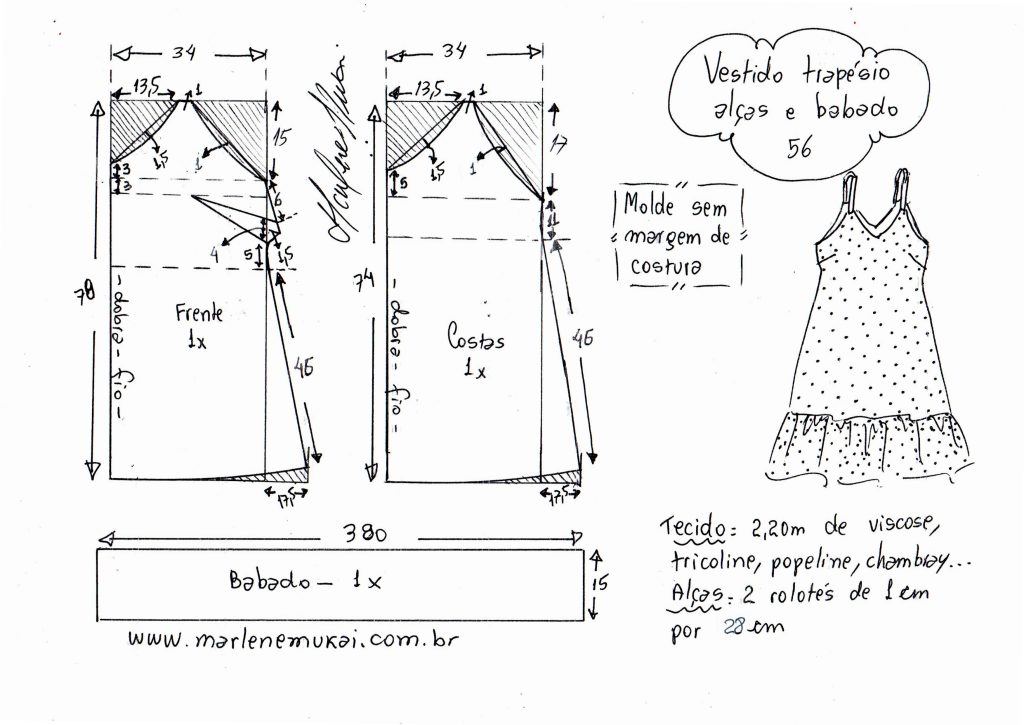 34
34
13,5
1
15
1,5
1
3
3
6
4
5
1,5
78
- dobra - fio -
Frente
1x
46
17,5
13,5
1
17
1,5
1
5
11
74
- dobra - fio -
Costas
1x
46
17,5
Vestido trapésio
alças e babado
56
Molde sem
margem de
costura
380
Babado - 1x
15
www.marlenemukai.com.br
Tecido: 2,20m de viscose,
tricoline, popeline, chambray...
Alças: 2 rolotês de 1cm
por 28cm